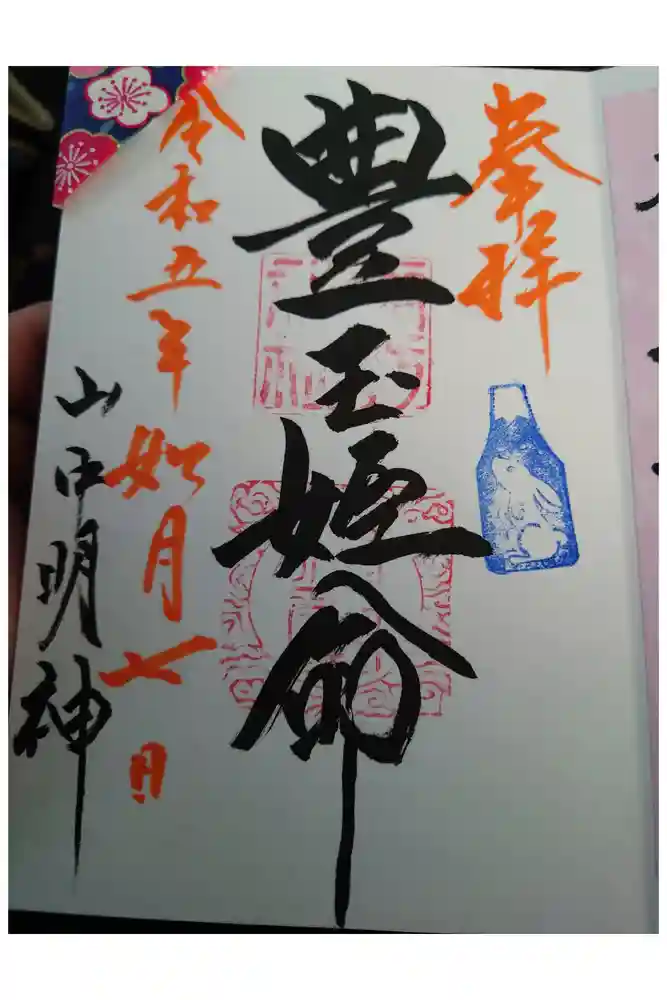 奉拝
豊玉姫命
令和五年如月七日
山中明神